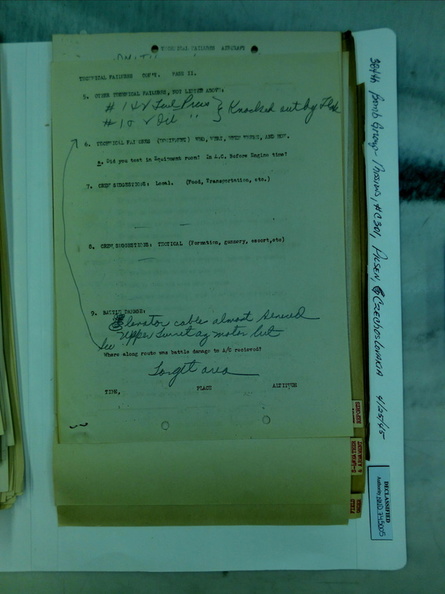 TECHNICAL FAILURES AIRCRAFT
TECHNICAL FAILURES CONT'D. PAGE II.
5. OTHER TECHNICAL FAILURES, NOT LISTED ABOVE:
# 1 & 2 Fuel Press
# 1 & 2 Oil "
Knocked out by Flak
6. TECHNICAL FAILURES (EQUIPMENT) WHO, WHAT, WHEN, AND HOW.
a. Did you test in Equipment room? In A.C. Before Engine time?
7. CREW SUGGESTIONS: Local. (Food, Transportation, etc.)
8. CREW SUGGESTIONS: TACTICAL (Formation, gunnery, escort, etc)
9. BATTLE DAMAGE:
Elevator cables almost severed
Upper turret az motor hit
Where along route was battle damage to A/C received?
Target area
TIME, PLACE ALTITUDE
384th Bomb Group - Missions, #301, PILSEN, CZECHOSLOVAKIA 4/25/45
DECLASSIFIED
Authority NND 745005